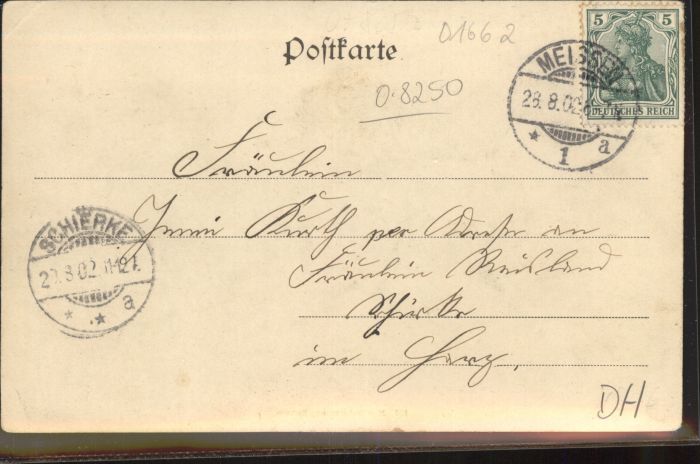 Postkarte
01662
0.8250
5 5
DEUTSCHES REICH
MEISSEN
28.8.02
1 a
Fräulein
Kurth per Adresse an
Fräulein
Schirke
im Harz.
SCHIERKE
8.02. 11-12V.
a
DH